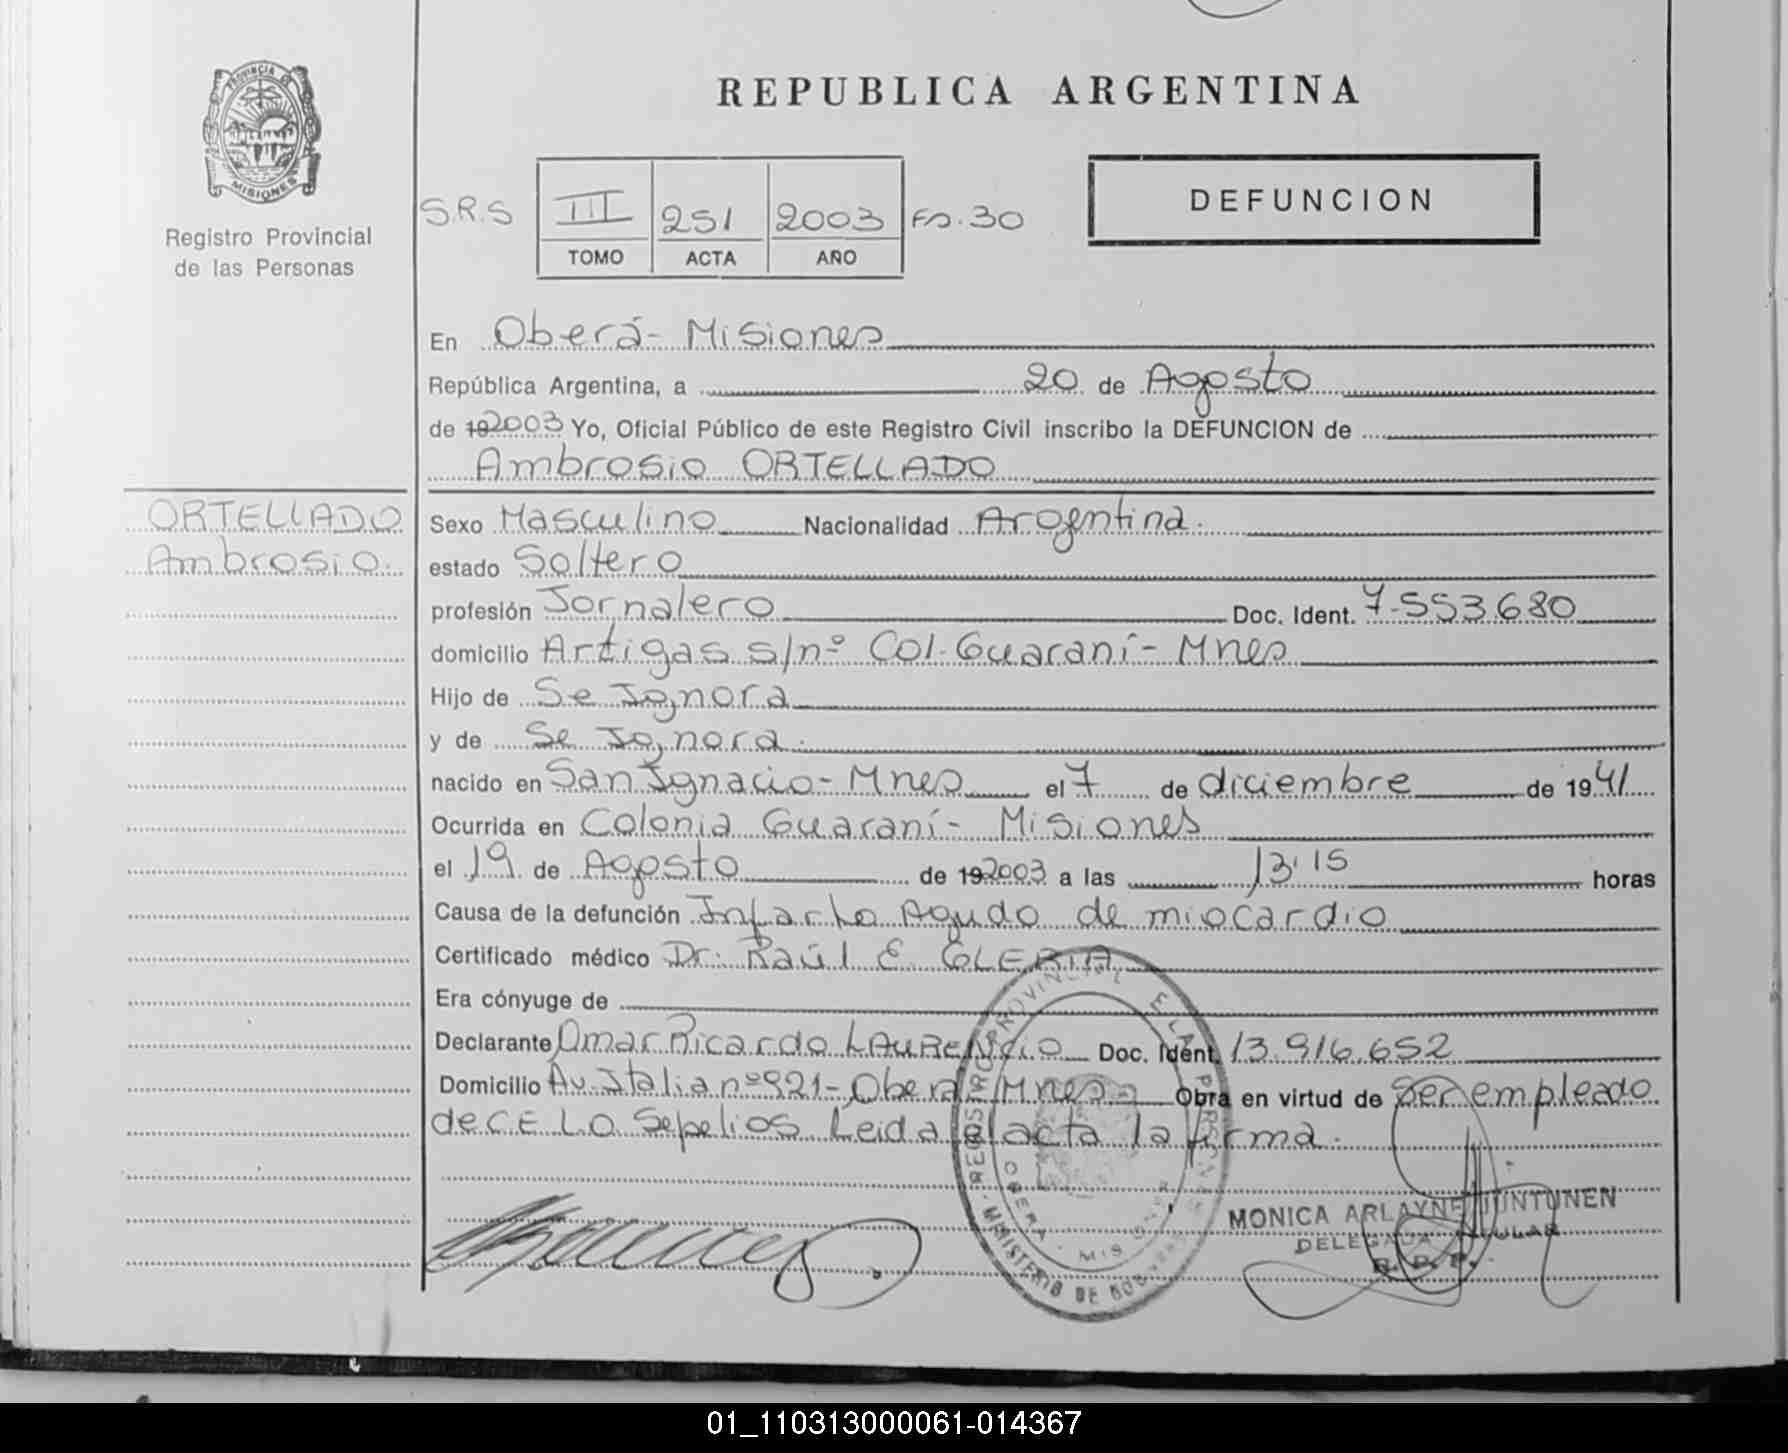 PROVINCIA DE
MISIONES
Registro Provincial
de las Personas
REPUBLICA ARGENTINA
S.R.S III 251 2003 Fo. 30
TOMO ACTA AÑO
DEFUNCION
En Oberá - Misiones
República Argentina, a 20 de Agosto
de 192003 Yo, Oficial Público de este Registro Civil inscribo la DEFUNCION de
Ambrosio ORTELLADO
ORTELLADO
Ambrosio.
Sexo Masculino Nacionalidad Argentina.
estado Soltero
profesión Jornalero Doc. Ident. 7.553.680
domicilio Artigas s/nº Col. Guaraní - Mnes
Hijo de Se Ignora
y de Se Ignora.
nacido en San Ignacio - Mnes el 7 de diciembre de 1941
Ocurrida en Colonia Guaraní - Misiones
el 19 de Agosto de 192003 a las 13'15 horas
Causa de la defunción Infarto Agudo de miocardio
Certificado médico Dr: Raúl E. GLERIA
Era cónyuge de
Declarante Omar Ricardo LAURENCIO Doc. Ident. 13.916.652
Domicilio Av. Italia nº 921 - Oberá Mnes Obra en virtud de Ser empleado
de C.E.L.O. Sepelios Leida el acta la firma.
MONICA ARLAYNE JUNTUNEN
DELEGADA TITULAR
R. P. P.
01_110313000061-014367